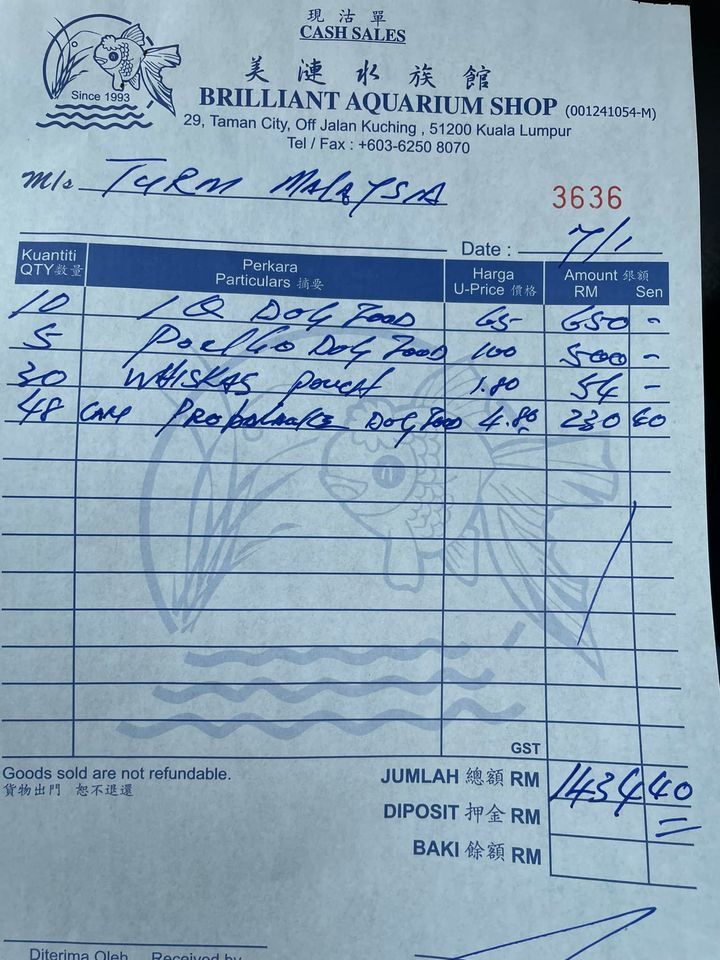 現沽單
CASH SALES
Since 1993
美漣水族館
BRILLIANT AQUARIUM SHOP (001241054-M)
29, Taman City, Off Jalan Kuching , 51200 Kuala Lumpur
Tel / Fax : +603-6250 8070
M/s TURM MALAYSIA
3636
Date : 7/1
Kuantiti QTY數量 Perkara Particulars 摘要 Harga U-Price 價格 Amount 銀額 RM Sen
10 IQ DOG FOOD 65 650 -
5 DOG FOOD 100 500 -
30 WHISKAS POUCH 1.80 54 -
48 DOG FOOD 4.80 230 40
GST
Goods sold are not refundable.
貨物出門 恕不退還
JUMLAH 總額 RM 1434 40
DIPOSIT 押金 RM
BAKI 餘額 RM
Diterima Oleh Received by